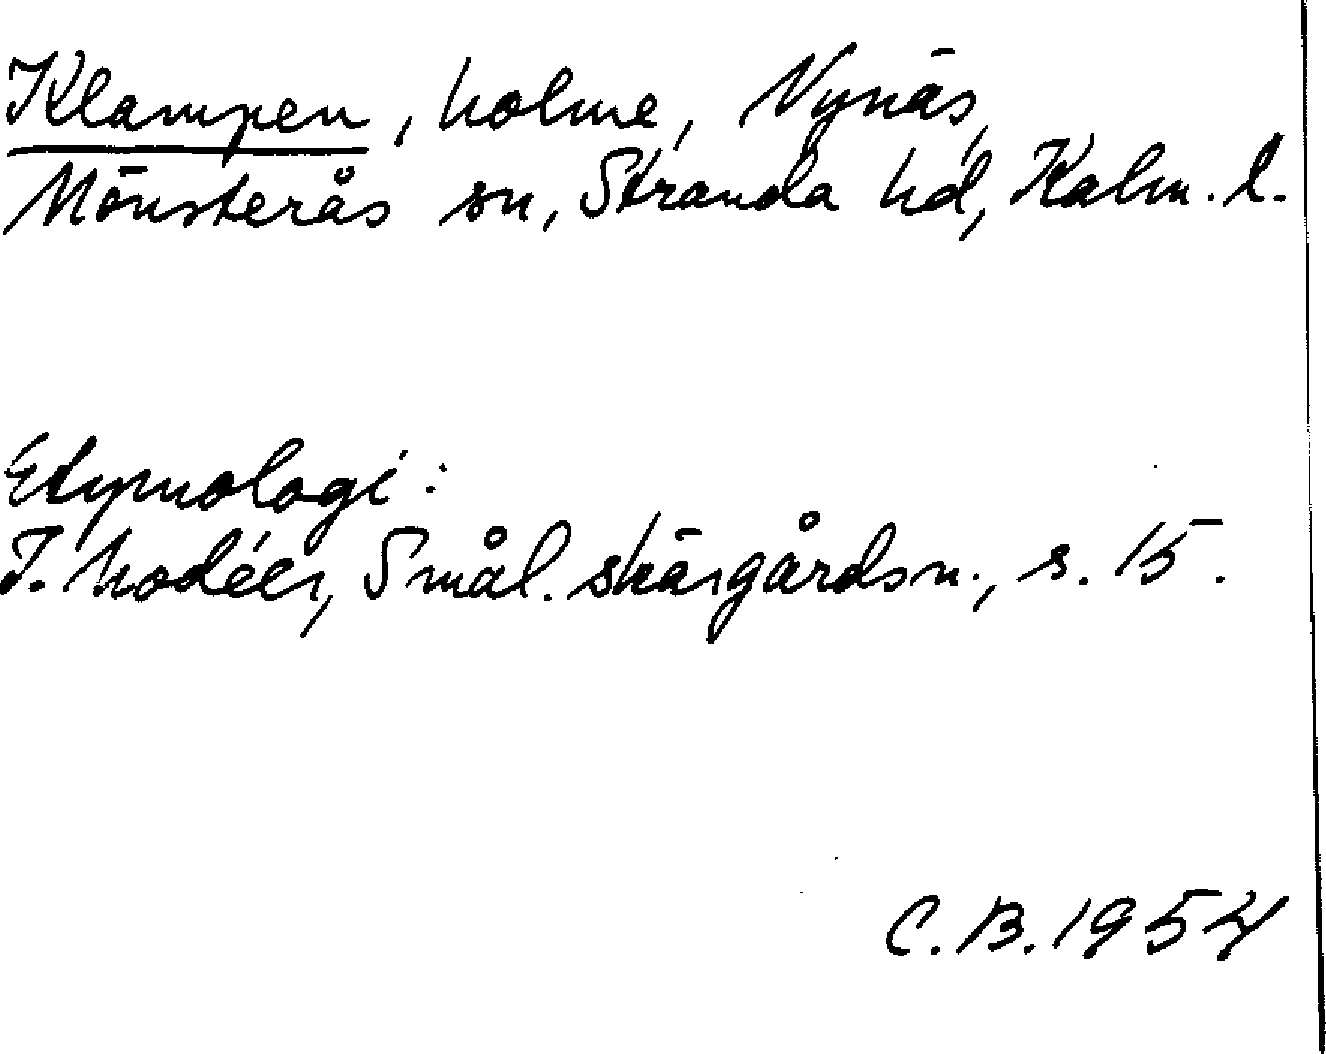 Klampen, holme, Vynäs,
Mönsterås sn, Stranda hd, Kalm. l.
Etymologi:
I. Modéer, Smål. skärgårdsn., s. 15.
C. B. 1954